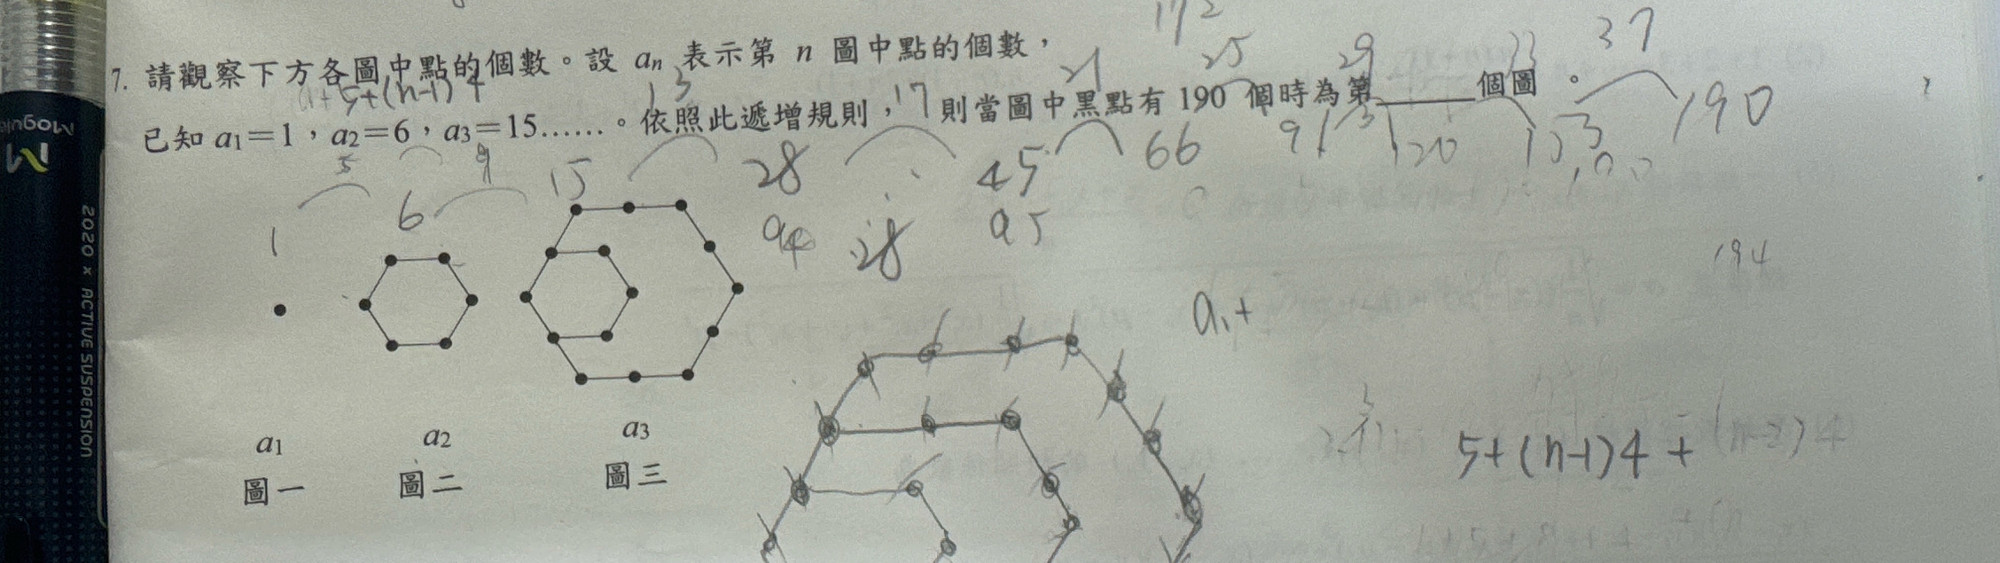 7. 請觀察下方各圖中點的個數。設 an 表示第 n 圖中點的個數，
a1+ 5+(n-1)4
已知 a1=1，a2=6，a3=15……。依照此遞增規則，則當圖中黑點有 190 個時為第______個圖。
17 2
5 9 13 17 21 25 29 33 37
1 6 15 28 45 66 91 120 153 190
a4 28 a5
194
a1+
5+(n-1)4+(n-2)4
a1 a2 a3
圖一 圖二 圖三
2020 × ACTIVE SUSPENSION